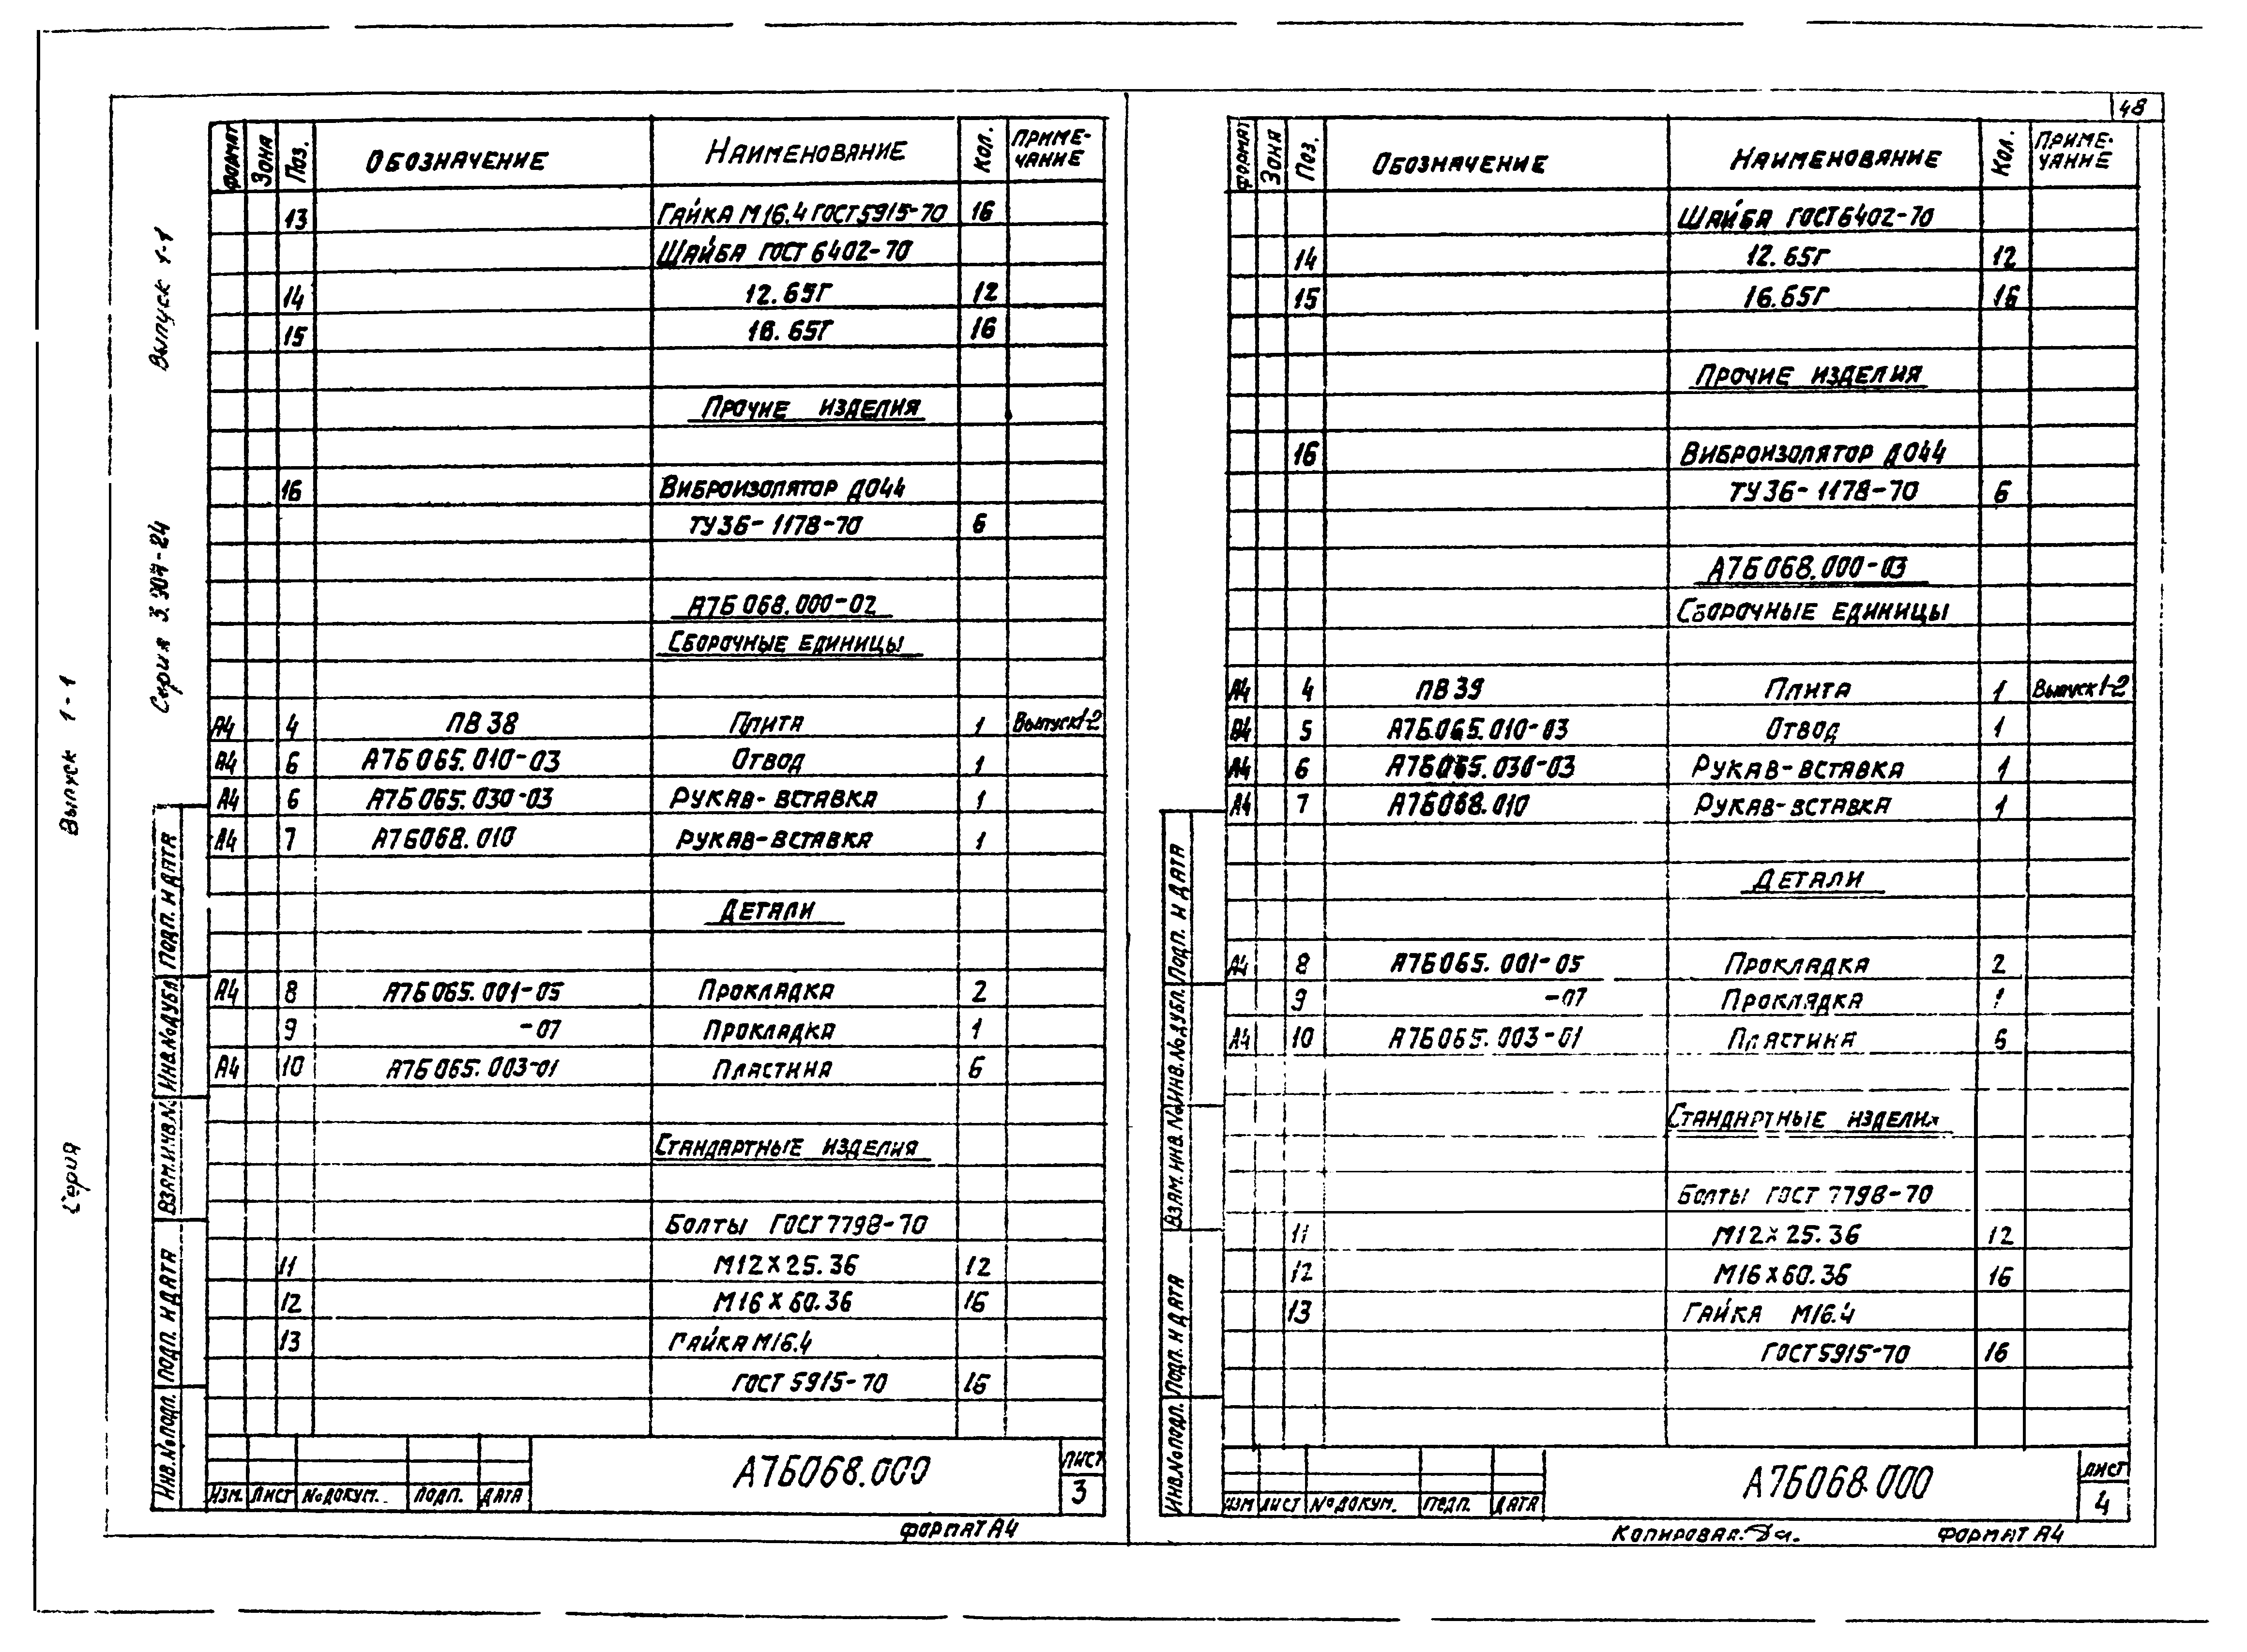 48
Выпуск 1-1
Серия 3.904-24
Выпуск 1-1
Серия
ФОРМАТ ЗОНА ПОЗ. ОБОЗНАЧЕНИЕ НАИМЕНОВАНИЕ КОЛ. ПРИМЕ-
ЧАНИЕ
13 ГАЙКА М16.4 ГОСТ 5915-70 16
ШАЙБА ГОСТ 6402-70
14 12.65Г 12
15 16.65Г 16
ПРОЧИЕ ИЗДЕЛИЯ
16 ВИБРОИЗОЛЯТОР ДО44
ТУ36-1178-70 6
А7Б068.000-02
СБОРОЧНЫЕ ЕДИНИЦЫ
А4 4 ПВ 38 ПЛИТА 1 Выпуск1-2
А4 6 А7Б065.010-03 ОТВОД 1
А4 6 А7Б065.030-03 РУКАВ-ВСТАВКА 1
А4 7 А7Б068.010 РУКАВ-ВСТАВКА 1
ДЕТАЛИ
А4 8 А7Б065.001-05 ПРОКЛАДКА 2
9 -07 ПРОКЛАДКА 1
А4 10 А7Б065.003-01 ПЛАСТИНА 6
СТАНДАРТНЫЕ ИЗДЕЛИЯ
БОЛТЫ ГОСТ 7798-70
11 М12×25.36 12
12 М16×60.36 16
13 ГАЙКА М16.4
ГОСТ 5915-70 16
ИНВ.№ПОДЛ. ПОДП. И ДАТА ВЗАМ.ИНВ.№ ИНВ.№ДУБЛ. ПОДП. И ДАТА
ИЗМ. ЛИСТ №ДОКУМ. ПОДП. ДАТА
А7Б068.000
ЛИСТ
3
ФОРМАТ А4
ФОРМАТ ЗОНА ПОЗ. ОБОЗНАЧЕНИЕ НАИМЕНОВАНИЕ КОЛ. ПРИМЕ-
ЧАНИЕ
ШАЙБА ГОСТ 6402-70
14 12.65Г 12
15 16.65Г 16
ПРОЧИЕ ИЗДЕЛИЯ
16 ВИБРОИЗОЛЯТОР ДО44
ТУ36-1178-70 6
А7Б068.000-03
СБОРОЧНЫЕ ЕДИНИЦЫ
А4 4 ПВ 39 ПЛИТА 1 Выпуск1-2
А4 5 А7Б065.010-03 ОТВОД 1
А4 6 А7Б065.030-03 РУКАВ-ВСТАВКА 1
А4 7 А7Б068.010 РУКАВ-ВСТАВКА 1
ДЕТАЛИ
А4 8 А7Б065.001-05 ПРОКЛАДКА 2
9 -07 ПРОКЛАДКА 1
А4 10 А7Б065.003-01 ПЛАСТИНА 6
СТАНДАРТНЫЕ ИЗДЕЛИЯ
БОЛТЫ ГОСТ 7798-70
11 М12×25.36 12
12 М16×60.36 16
13 ГАЙКА М16.4
ГОСТ 5915-70 16
ИНВ.№ПОДЛ. ПОДП. И ДАТА ВЗАМ. ИНВ.№ ИНВ.№ДУБЛ. ПОДП. И ДАТА
ИЗМ ЛИСТ №ДОКУМ. ПОДП. ДАТА
А7Б068.000
ЛИСТ
4
КОПИРОВАЛ: ФОРМАТ А4